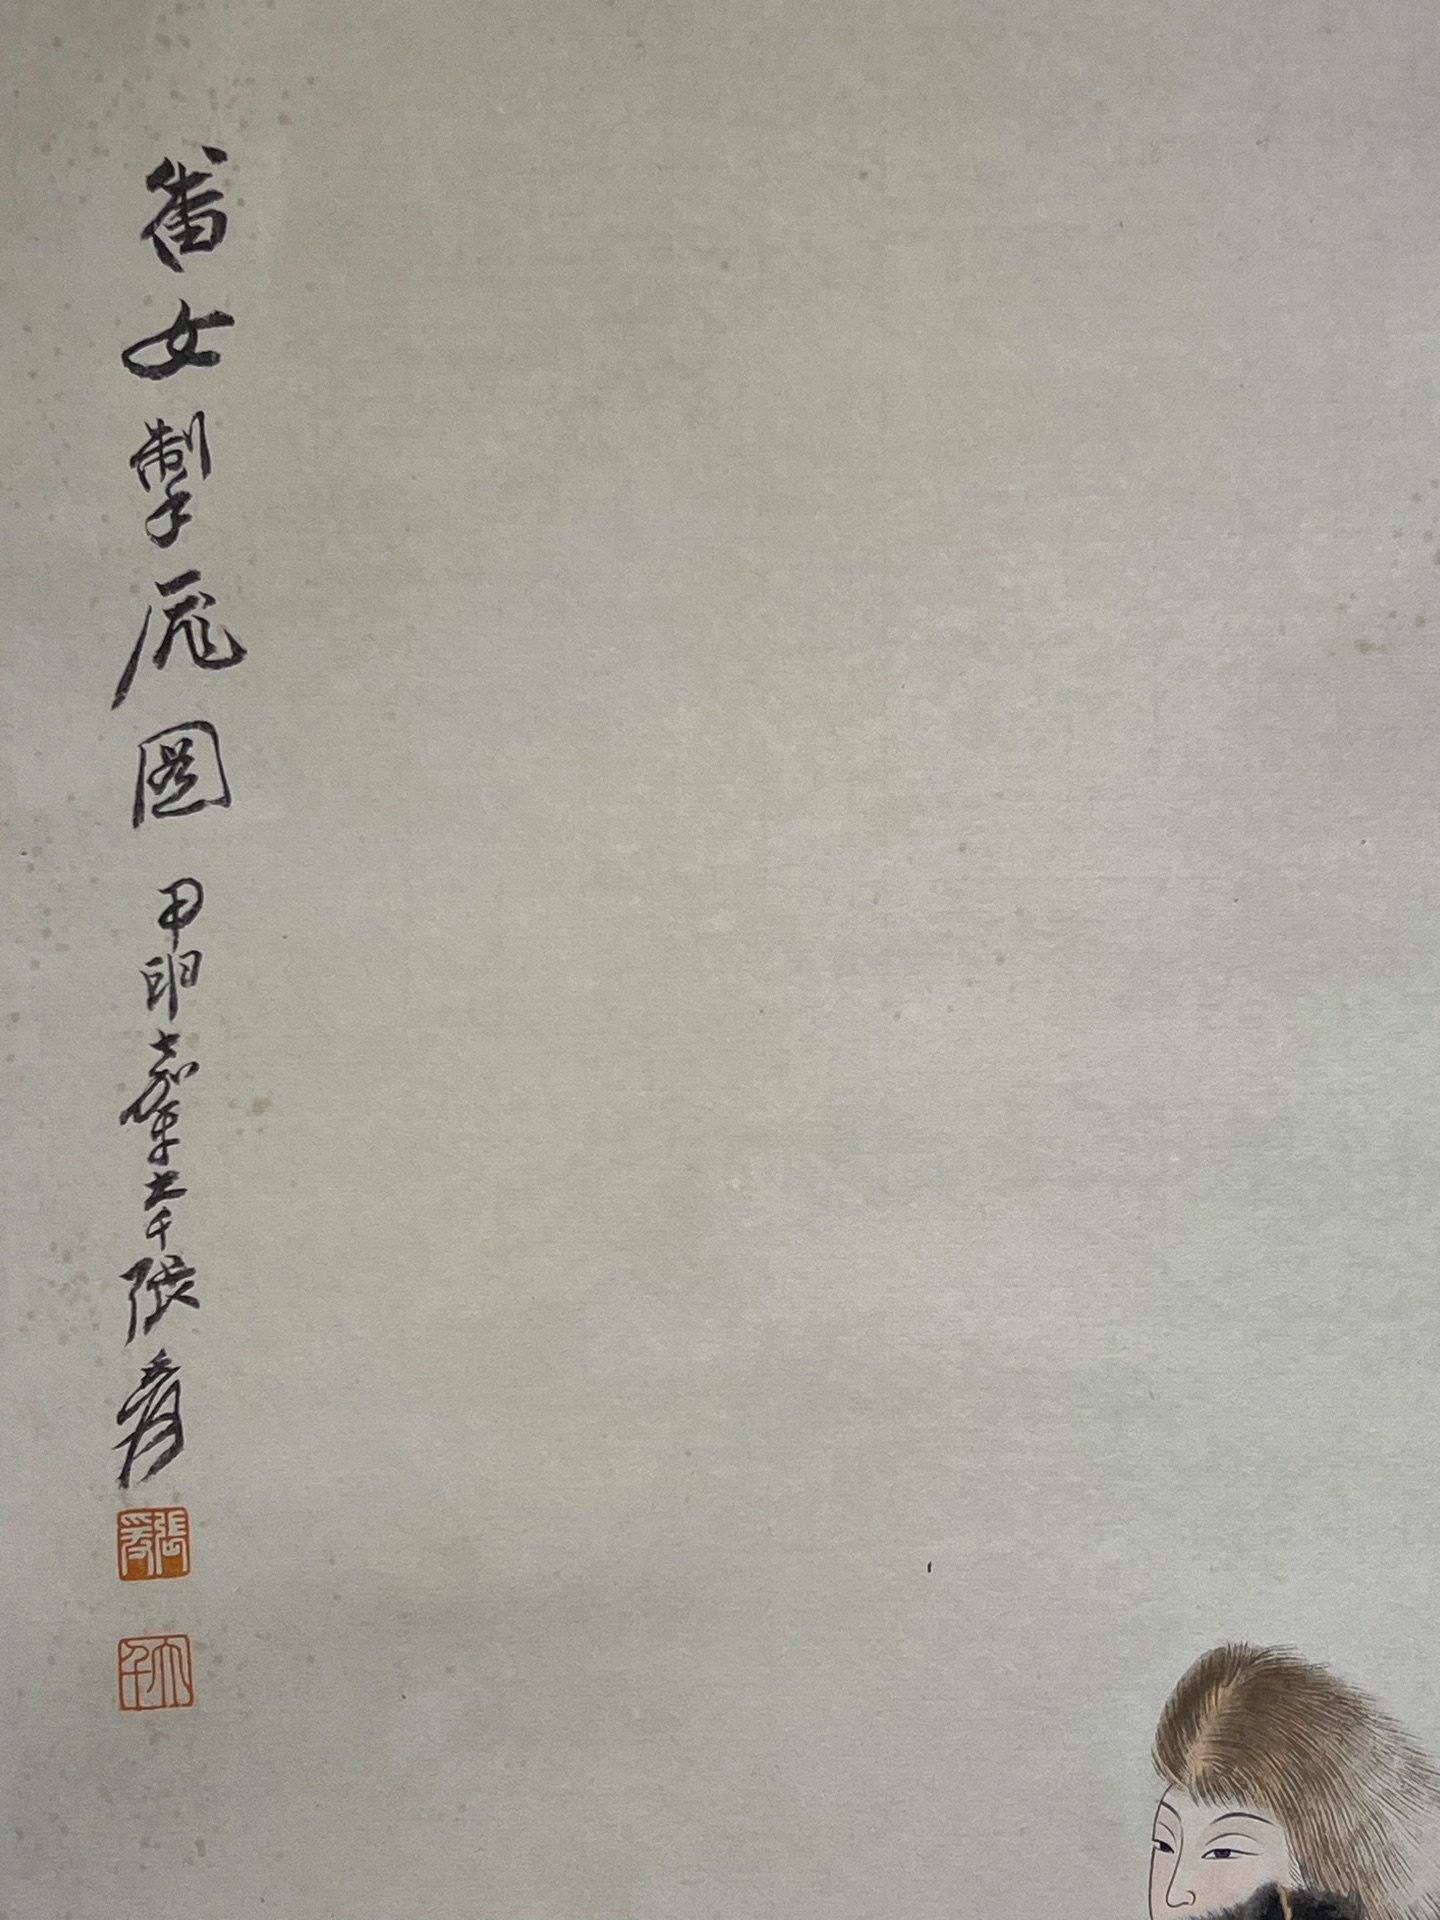 番女掣厖圖 甲申嘉平 大千張爰
張爰
大千